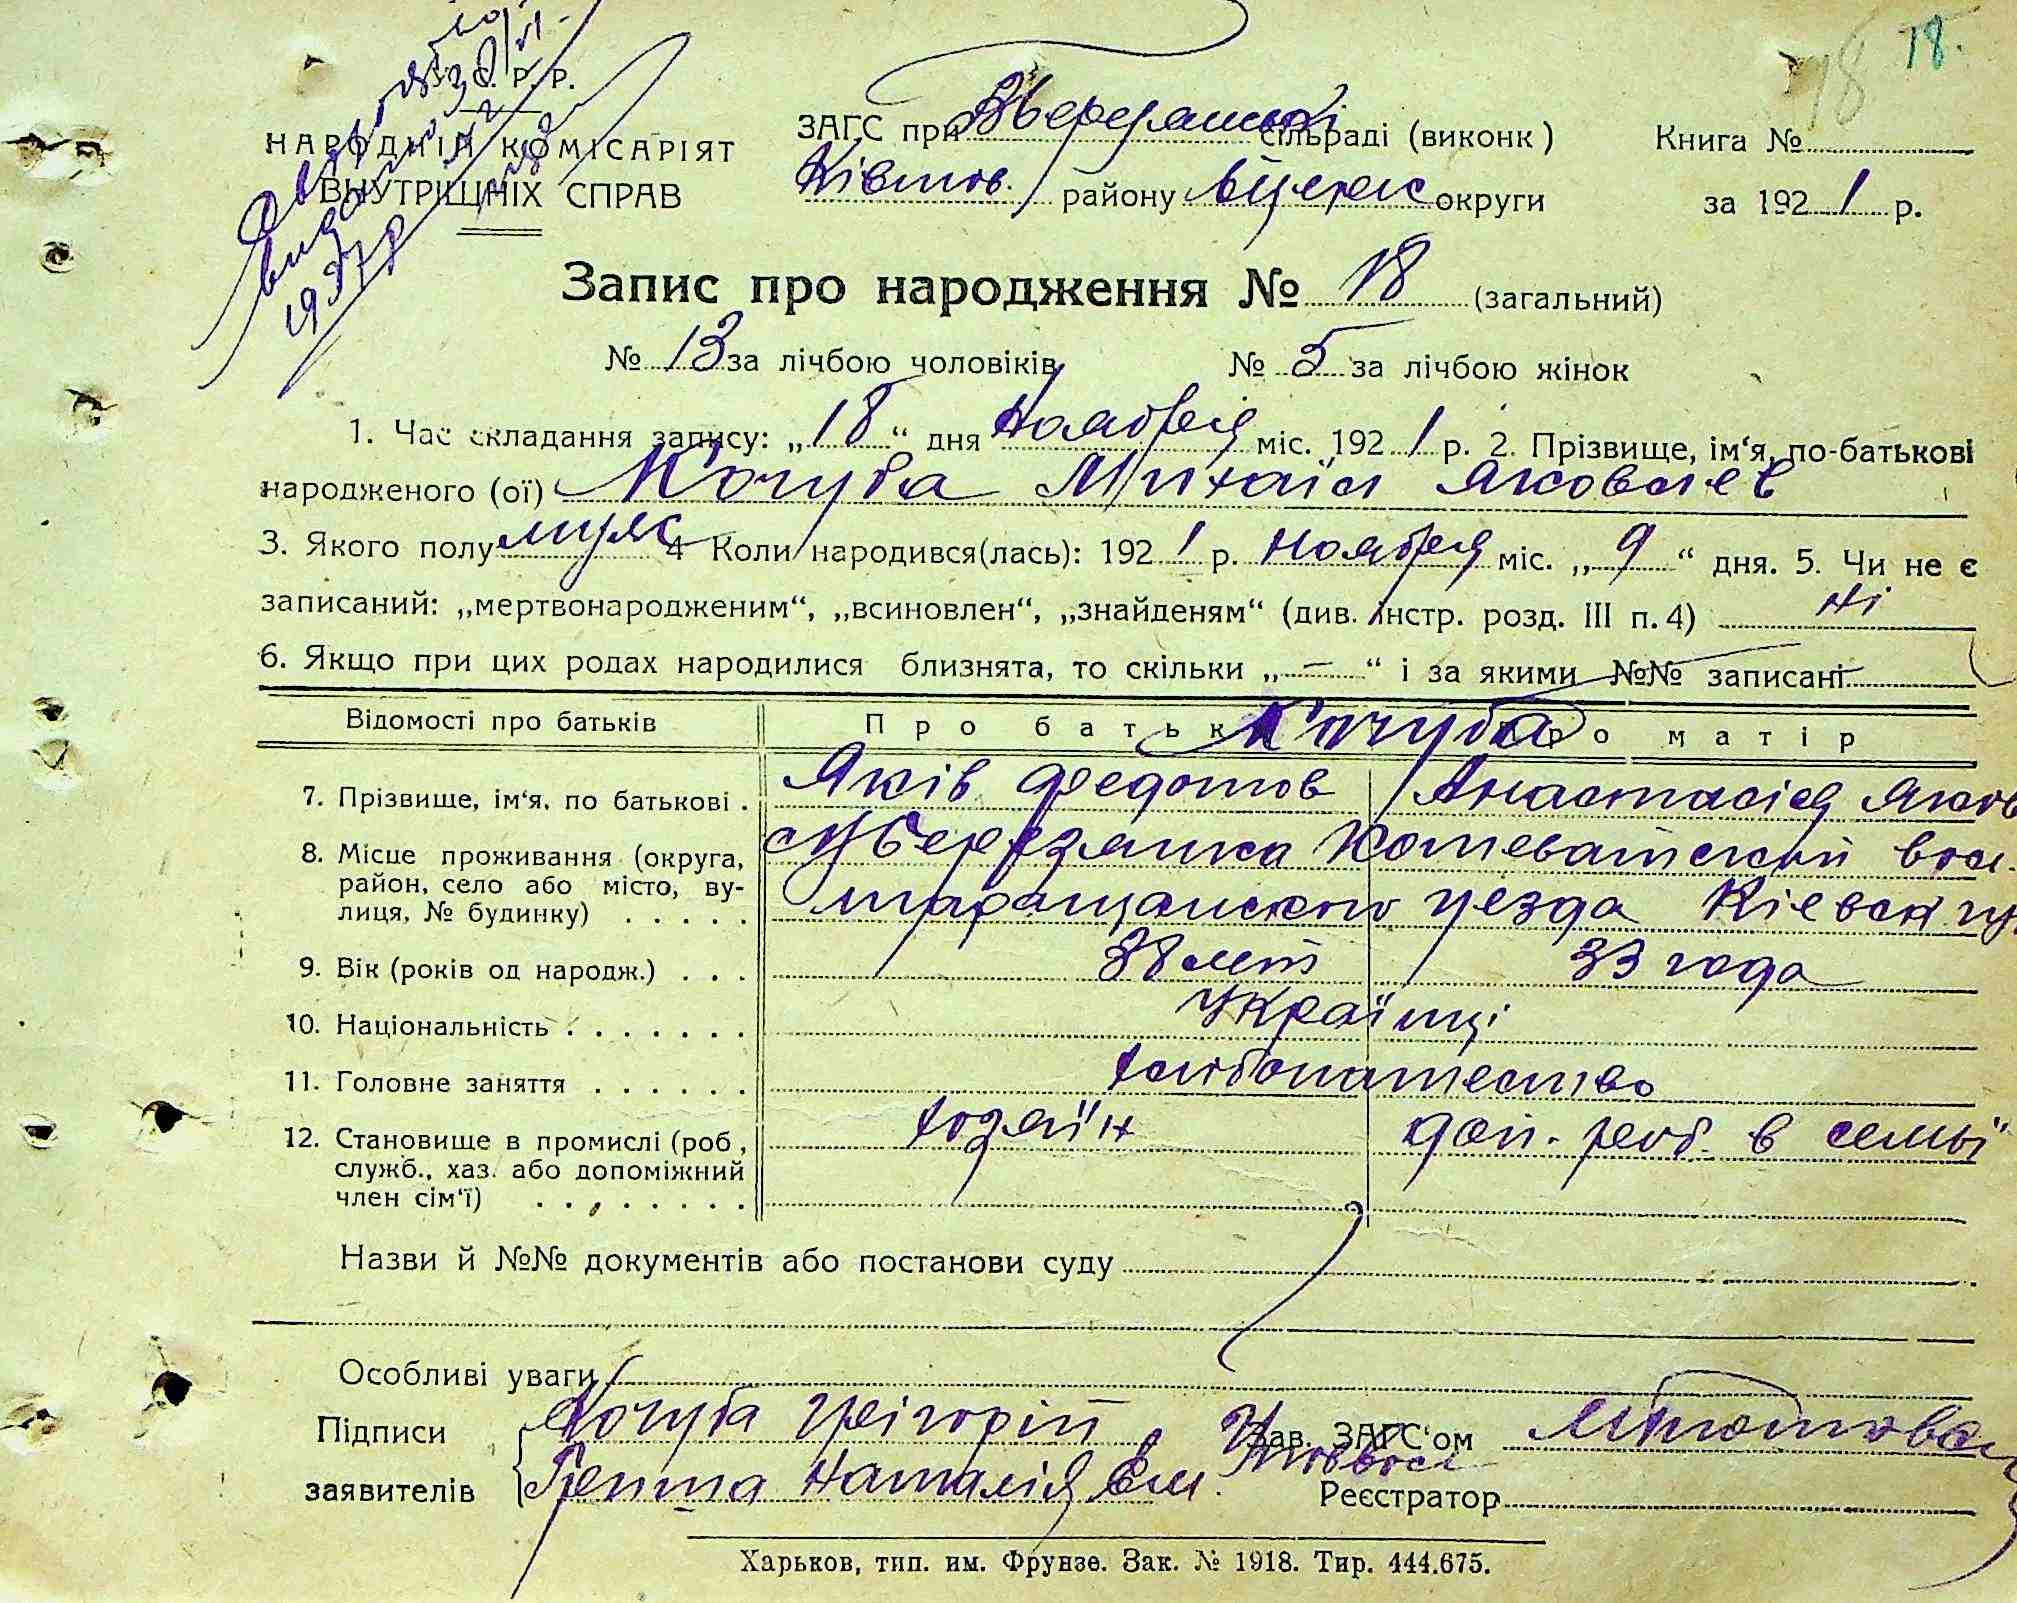 18.
18
Р. Р.
НАРОДНІЙ КОМІСАРІЯТ
ВНУТРІШНІХ СПРАВ
1937 р
ЗАГС при сільраді (виконк)
району округи
Книга №
за 1921 р.
Запис про народження № 18 (загальний)
№ 13 за лічбою чоловіків № 5 за лічбою жінок
1. Час складання запису: „18“ дня Ноября міс. 1921 р. 2. Прізвище, ім‘я, по-батькові
народженого (ої) Кочуба Михаил Яковлев
3. Якого полу муж 4 Коли народився(лась): 1921 р. Ноября міс. „9“ дня. 5. Чи не є
записаний: „мертвонародженим“, „всиновлен“, „знайденям“ (див. інстр. розд. III п. 4) ні
6. Якщо при цих родах народилися близнята, то скільки „—“ і за якими №№ записані
Відомості про батьків Про батька Про матір
Кочуба
7. Прізвище, ім‘я, по батькові . Яків Федотов Анастасія Яков
8. Місце проживання (округа,
район, село або місто, ву-
лиця, № будинку) . . . . .
Збережанка вол.
Таращанского уезда Кіевск. гу
9. Вік (років од народж.) . . . 38 лет 33 года
10. Національність . . . . . . . Українці
11. Головне заняття . . . . . . хлібопашество
12. Становище в промислі (роб,
служб., хаз. або допоміжний
член сім‘ї) . . . . . . . .
хозяїн доп. роб. в семьї
Назви й №№ документів або постанови суду
Особливі уваги
Підписи
заявителів
Кочуба Григорій
Репта Наталія
Зав. ЗАГС‘ом
Реєстратор
Харьков, тип. им. Фрунзе. Зак. № 1918. Тир. 444.675.